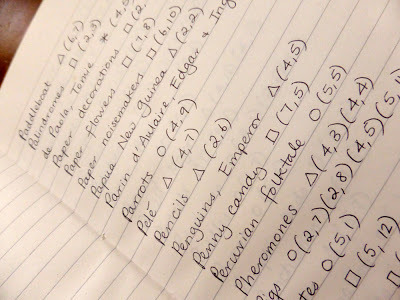 Paddleboat △ (6,7)
Palindromes □ (2,3)
de Paola, Tomie * (4,5
Paper decorations □ (2,
Paper flowers □ (7,8)
Paper noisemakers □ (6,10)
Papua New Guinea △ (2,2)
Parin d'Aulaire, Edgar & Ing
Parrots O (4,9)
Pelé △ (4,1)
Pencils △ (2,6)
Penguins, Emperor △ (4,5)
Penny candy □ (7,5)
Peruvian folktale O (5,5)
Pheromones △ (4,3)(4,4)
Pigs O (2,7)(2,8)(4,5)(5,
tes O (5,1)
□ (5,12)